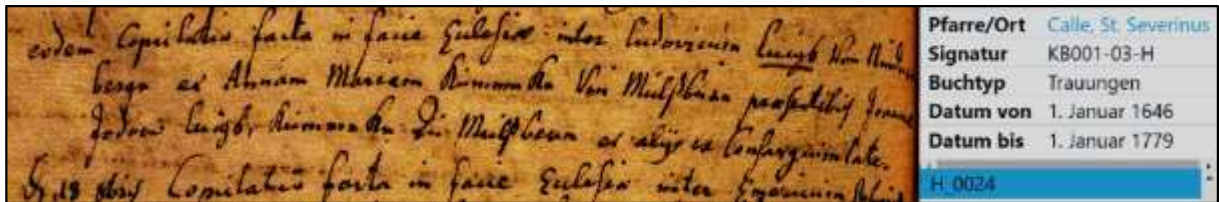 eodem Copulatio facta in facie Eculesiae inter Ludovicum Luigs Von
berge et Annam Mariam Von praesentibus
Jodoco Luigs, Zu et alijs ex Consanguinitate.
18 8bris Copulatio facta in facie Eculesiae inter
Pfarre/Ort Calle, St. Severinus
Signatur KB001-03-H
Buchtyp Trauungen
Datum von 1. Januar 1646
Datum bis 1. Januar 1779
H_0024